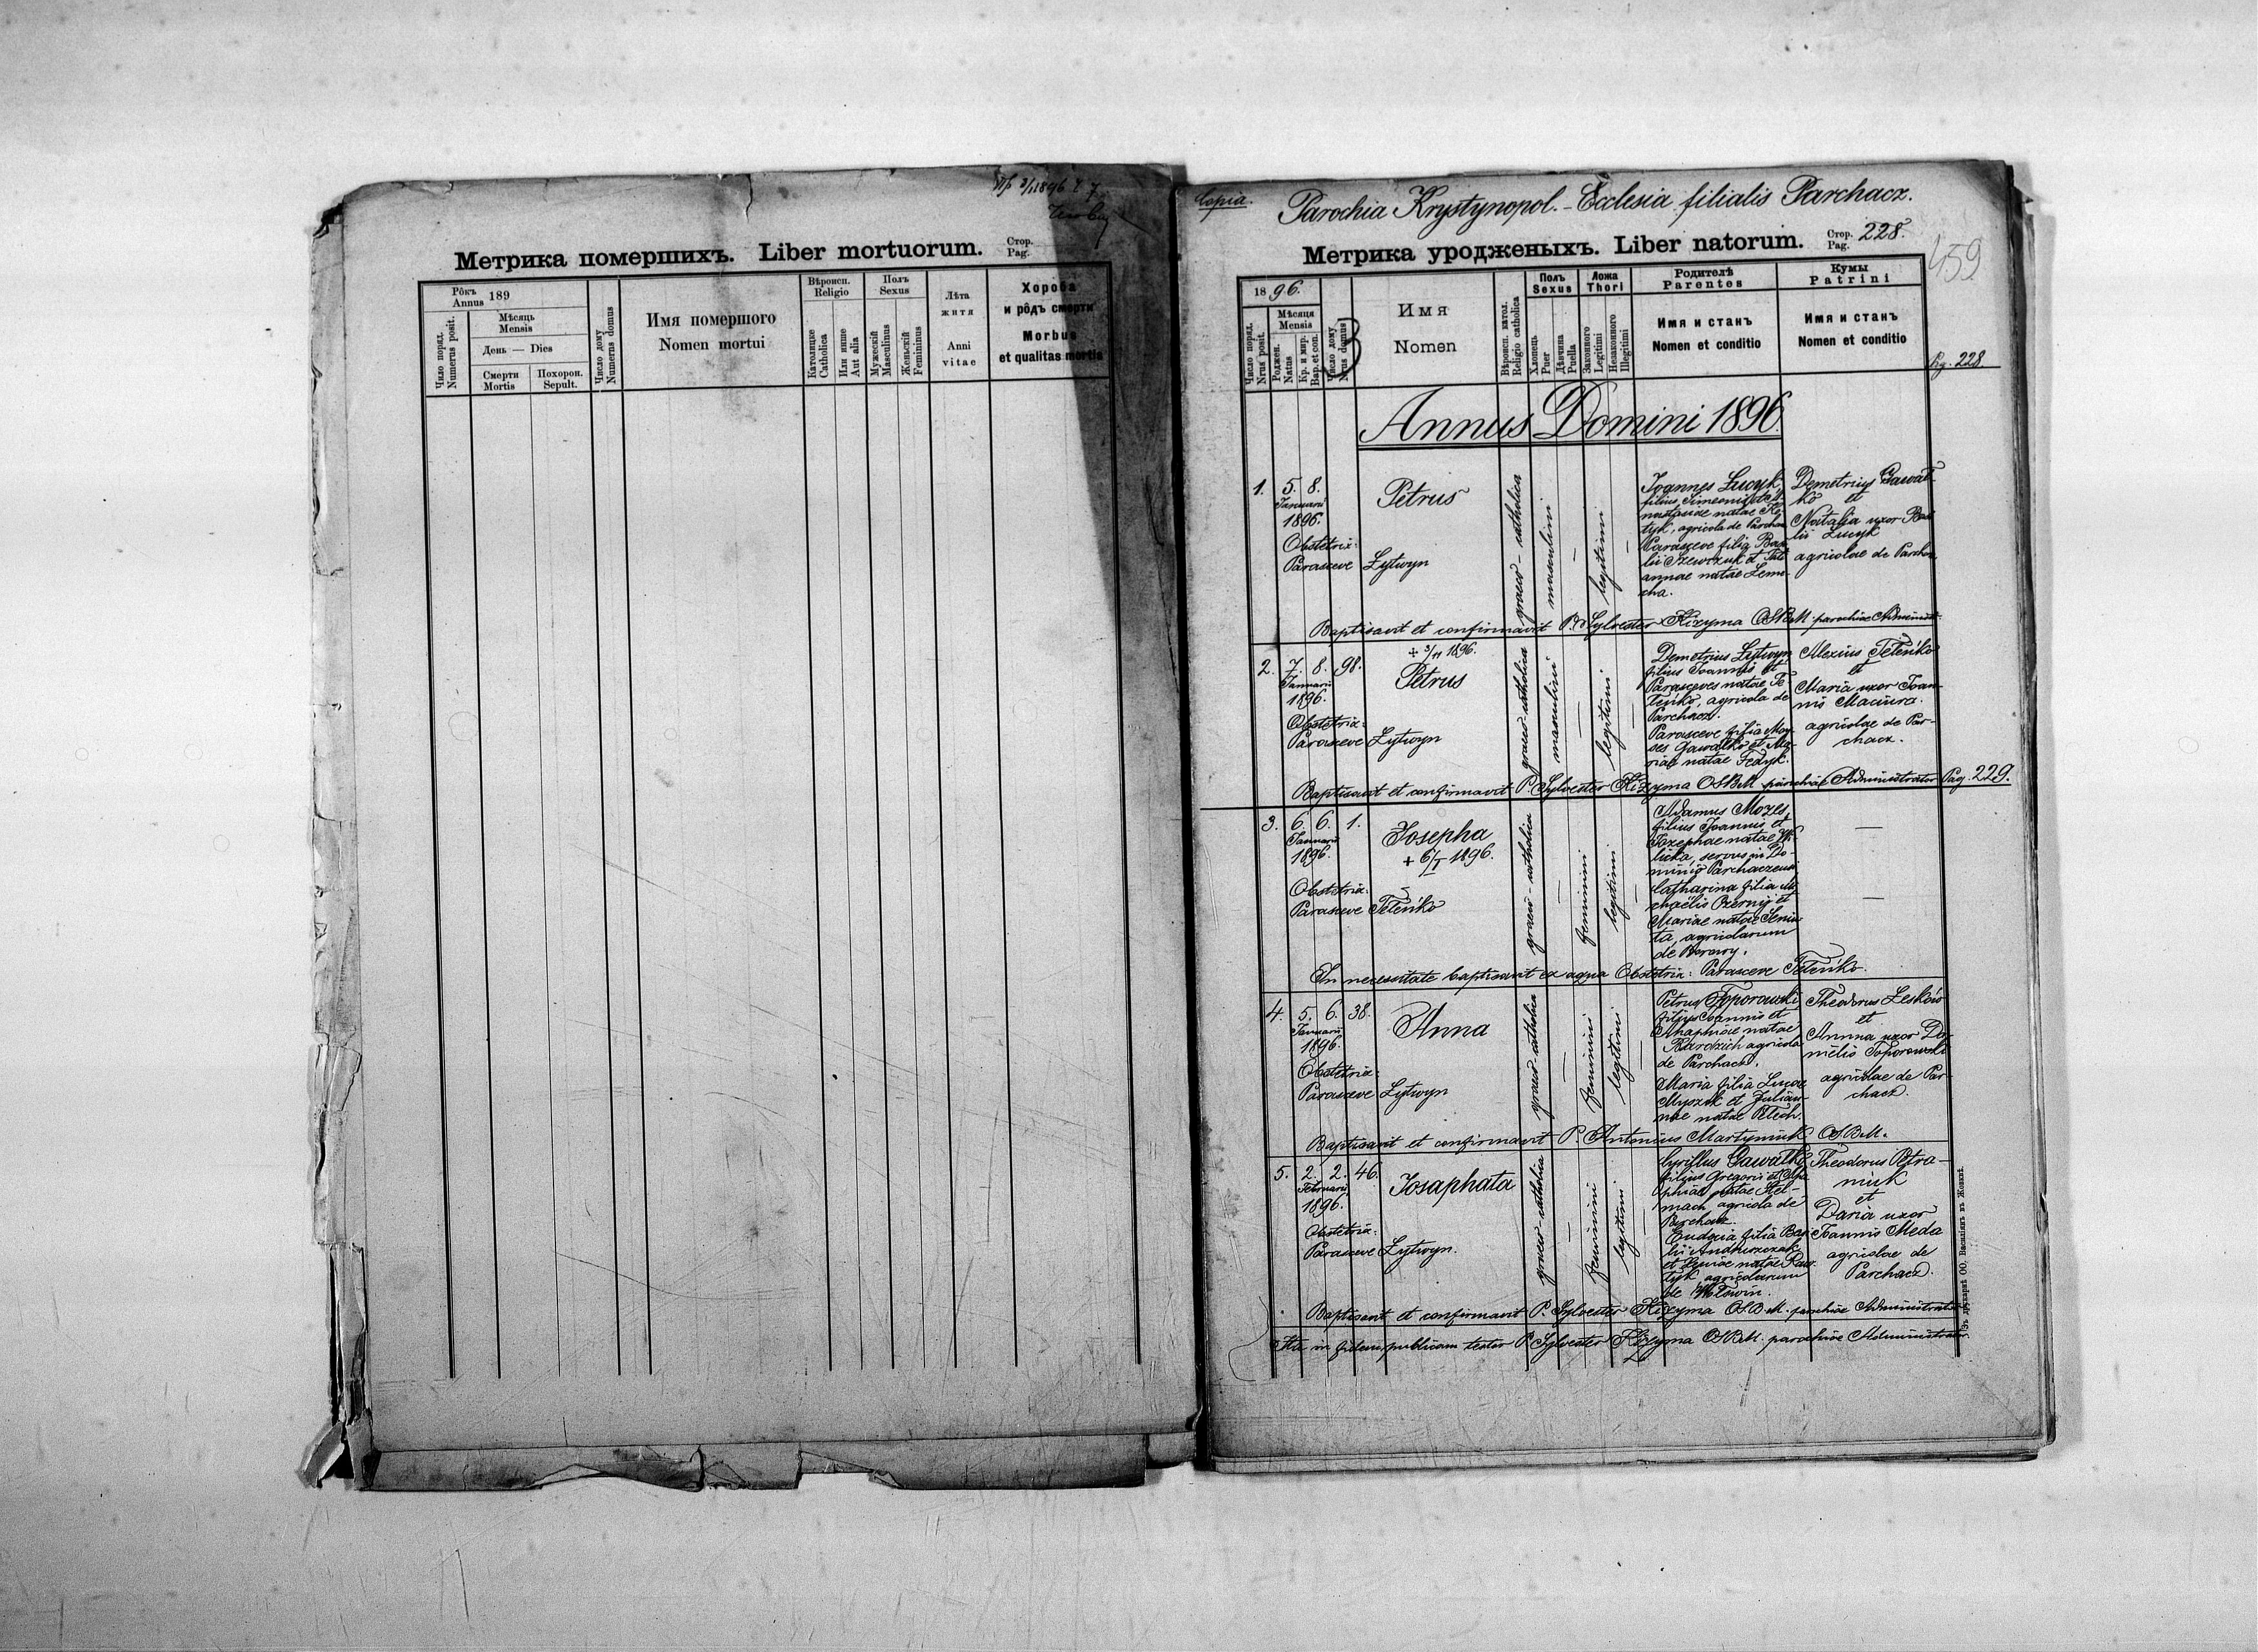 1896
Метрика помершихъ. Liber mortuorum. Стор. Pag.
Рôкъ Annus 189
Число поряд. Numerus posit.
Мѣсяць Mensis
День — Dies
Смерти Mortis
Похорон. Sepult.
Число дому Numerus domus
Имя помершого
Nomen mortui
Вѣроисп. Religio
Католицке Catholica
Или инше Aut alia
Полъ Sexus
Мужескій Masculinus
Женьскій Femininus
Лѣта житя
Anni vitae
Хороба
и рôдъ смерти
Morbus
et qualitas mortis
Copia.
Parochia Krystynopol. - Ecclesia filialis Parchacz.
Метрика уродженыхъ. Liber natorum. Стор. Pag. 228.
459
1896.
Число поряд. Nrus posit.
Мѣсяця Mensis
Рожден. Natus
Кр. и мир. Bap. et con.
Число дому Nrus domus
Имя
Nomen
Вѣроисп. катол. Religio catholica
Полъ Sexus
Хлопець Puer
Дѣвчина Puella
Ложа Thori
Законного Legitimi
Незаконного Illegitimi
Родителѣ
Parentes
Имя и станъ
Nomen et conditio
Кумы
Patrini
Имя и станъ
Nomen et conditio
Pg. 228
Annus Domini 1896
1. 5. 8.
Januarii
1896.
Petrus
Obstetrix:
Parasceve Lytwyn
graeco-catholica
masculini
legitimi
Joannes Lucyk
filius Simeonis et
natae
tyk, agricola de Parchacz
Parasceve filia Basi-
lii Szewczuk et Tati-
annae natae Leme-
cha.
Demetrius Gawał-
ko et
Natalia uxor Basi-
lii Lucyk
agricolae de Parchacz
Baptisavit et confirmavit P. Sylvester Kizyma OSBM. parochiae Administr.
2. 7. 8. 98.
Januarii
1896.
+ 3/11 1896.
Petrus
Obstetrix:
Parasceve Lytwyn
graeco-catholica
masculini
legitimi
Demetrius Lytwyn
filius Joannis et
Parasceves natae Te-
leńko, agricola de
Parchacz.
Parasceve filia Moy-
ses Gawałko et Ma-
riae natae Fedyk.
Alexius Teleńko
et
Maria uxor Joan-
nis Maciura.
agricolae de Par-
chacz.
Baptisavit et confirmavit P. Sylvester Kizyma OSBM parochiae Administrator Pag. 229.
3. 6. 6. 1.
Januarii
1896.
Josepha
+ 6/I 1896.
Obstetrix:
Parasceve Teleńko
graeco-catholica
feminini
legitimi
Adamus Mozes,
filius Joannis et
Josephae natae
servus in Do-
minio Parchaczensi
Catharina filia Mi-
chaëlis Czernij et
Mariae natae Seniu-
ta, agricolarum
de
In necessitate baptisavit ex aqua Obstetrix: Parasceve Teleńko.
4. 5. 6. 38.
Januarii
1896.
Anna
Obstetrix:
Parasceve Lytwyn
graeco-catholica
feminini
legitimi
Petrus Toporowski
filius Joannis et
Anaphiae natae
agricola
de Parchacz.
Maria filia Lucae
Myszuk et Julian-
nae natae Petech.
Theodorus Leskow
et
Anna uxor Da-
nielis Toporowski
agricolae de Par-
chacz.
Baptisavit et confirmavit P. Antonius Martyniuk OSBM.
5. 2. 2. 46.
Februarii
1896.
Josaphata
Obstetrix:
Parasceve Lytwyn.
graeco-catholica
feminini
legitimi
Cyrillus Gawałko
filius Gregorii et Aga-
phiae natae Stel-
mach agricola de
Parchacz.
Eudoxia filia Basi-
lii Andruszczak
et Xeniae natae
tyk agricolarum
de
Theodorus Petra-
niuk
et
Daria uxor
Joannis Meda
agricolae de
Parchacz.
Baptisavit et confirmavit P. Sylvester Kizyma OSBM. parochiae Administrator
Ita in fidem publicam testor P. Sylvester Kizyma OSBM. parochiae Administrator
Зъ друкарнѣ ОО. Василіянъ въ Жовквѣ.